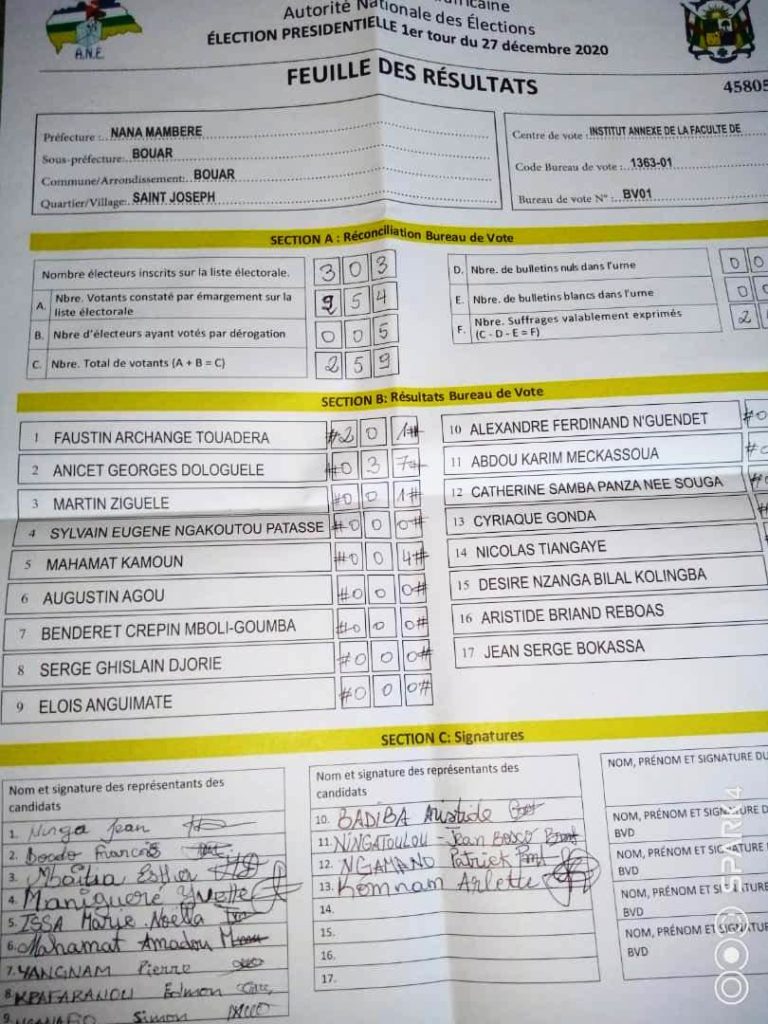 Autorité Nationale des Élections
A.N.E
ÉLECTION PRESIDENTIELLE 1er tour du 27 décembre 2020
FEUILLE DES RÉSULTATS
45805
Préfecture : NANA MAMBERE
Sous-préfecture: BOUAR
Commune/Arrondissement: BOUAR
Quartier/Village: SAINT JOSEPH
Centre de vote : INSTITUT ANNEXE DE LA FACULTE DE
Code Bureau de vote : 1363-01
Bureau de vote N° : BV01
SECTION A : Réconciliation Bureau de Vote
Nombre électeurs inscrits sur la liste électorale. 3 0 3
A. Nbre. Votants constaté par émargement sur la liste électorale 2 5 4
B. Nbre d'électeurs ayant votés par dérogation 0 0 5
C. Nbre. Total de votants (A + B = C) 2 5 9
D. Nbre. de bulletins nuls dans l'urne 0 0
E. Nbre. de bulletins blancs dans l'urne 0 0
F. Nbre. Suffrages valablement exprimés (C - D - E = F) 2
SECTION B: Résultats Bureau de Vote
1 FAUSTIN ARCHANGE TOUADERA #2 0 1#
2 ANICET GEORGES DOLOGUELE #0 3 7#
3 MARTIN ZIGUELE #0 0 1#
4 SYLVAIN EUGENE NGAKOUTOU PATASSE #0 0 0#
5 MAHAMAT KAMOUN #0 0 4#
6 AUGUSTIN AGOU #0 0 0#
7 BENDERET CREPIN MBOLI-GOUMBA #0 0 0#
8 SERGE GHISLAIN DJORIE #0 0 0#
9 ELOIS ANGUIMATE #0 0 0#
10 ALEXANDRE FERDINAND N'GUENDET #0
11 ABDOU KARIM MECKASSOUA
12 CATHERINE SAMBA PANZA NEE SOUGA
13 CYRIAQUE GONDA
14 NICOLAS TIANGAYE
15 DESIRE NZANGA BILAL KOLINGBA
16 ARISTIDE BRIAND REBOAS
17 JEAN SERGE BOKASSA
SECTION C: Signatures
Nom et signature des représentants des candidats
1. Ninga Jean
2. Bocdo Francis
3. Esther
4. Manigueré Yvette
5. ISSA Marie Noella
6. Mahamat Amadou
7. YANGNAM Pierre
8. Edmon
9. Simon
Nom et signature des représentants des candidats
10. BADIBA Aristide
11. NINGATOULOU Jean BOSCO
12. NGAMANO Patrick
13. Komnam Arlette
14.
15.
16.
17.
NOM, PRÉNOM ET SIGNATURE DU
NOM, PRÉNOM ET SIGNATURE D
BVD
NOM, PRÉNOM ET SIGNATURE
BVD
NOM, PRÉNOM ET
BVD
NOM, PRÉNOM ET
BVD